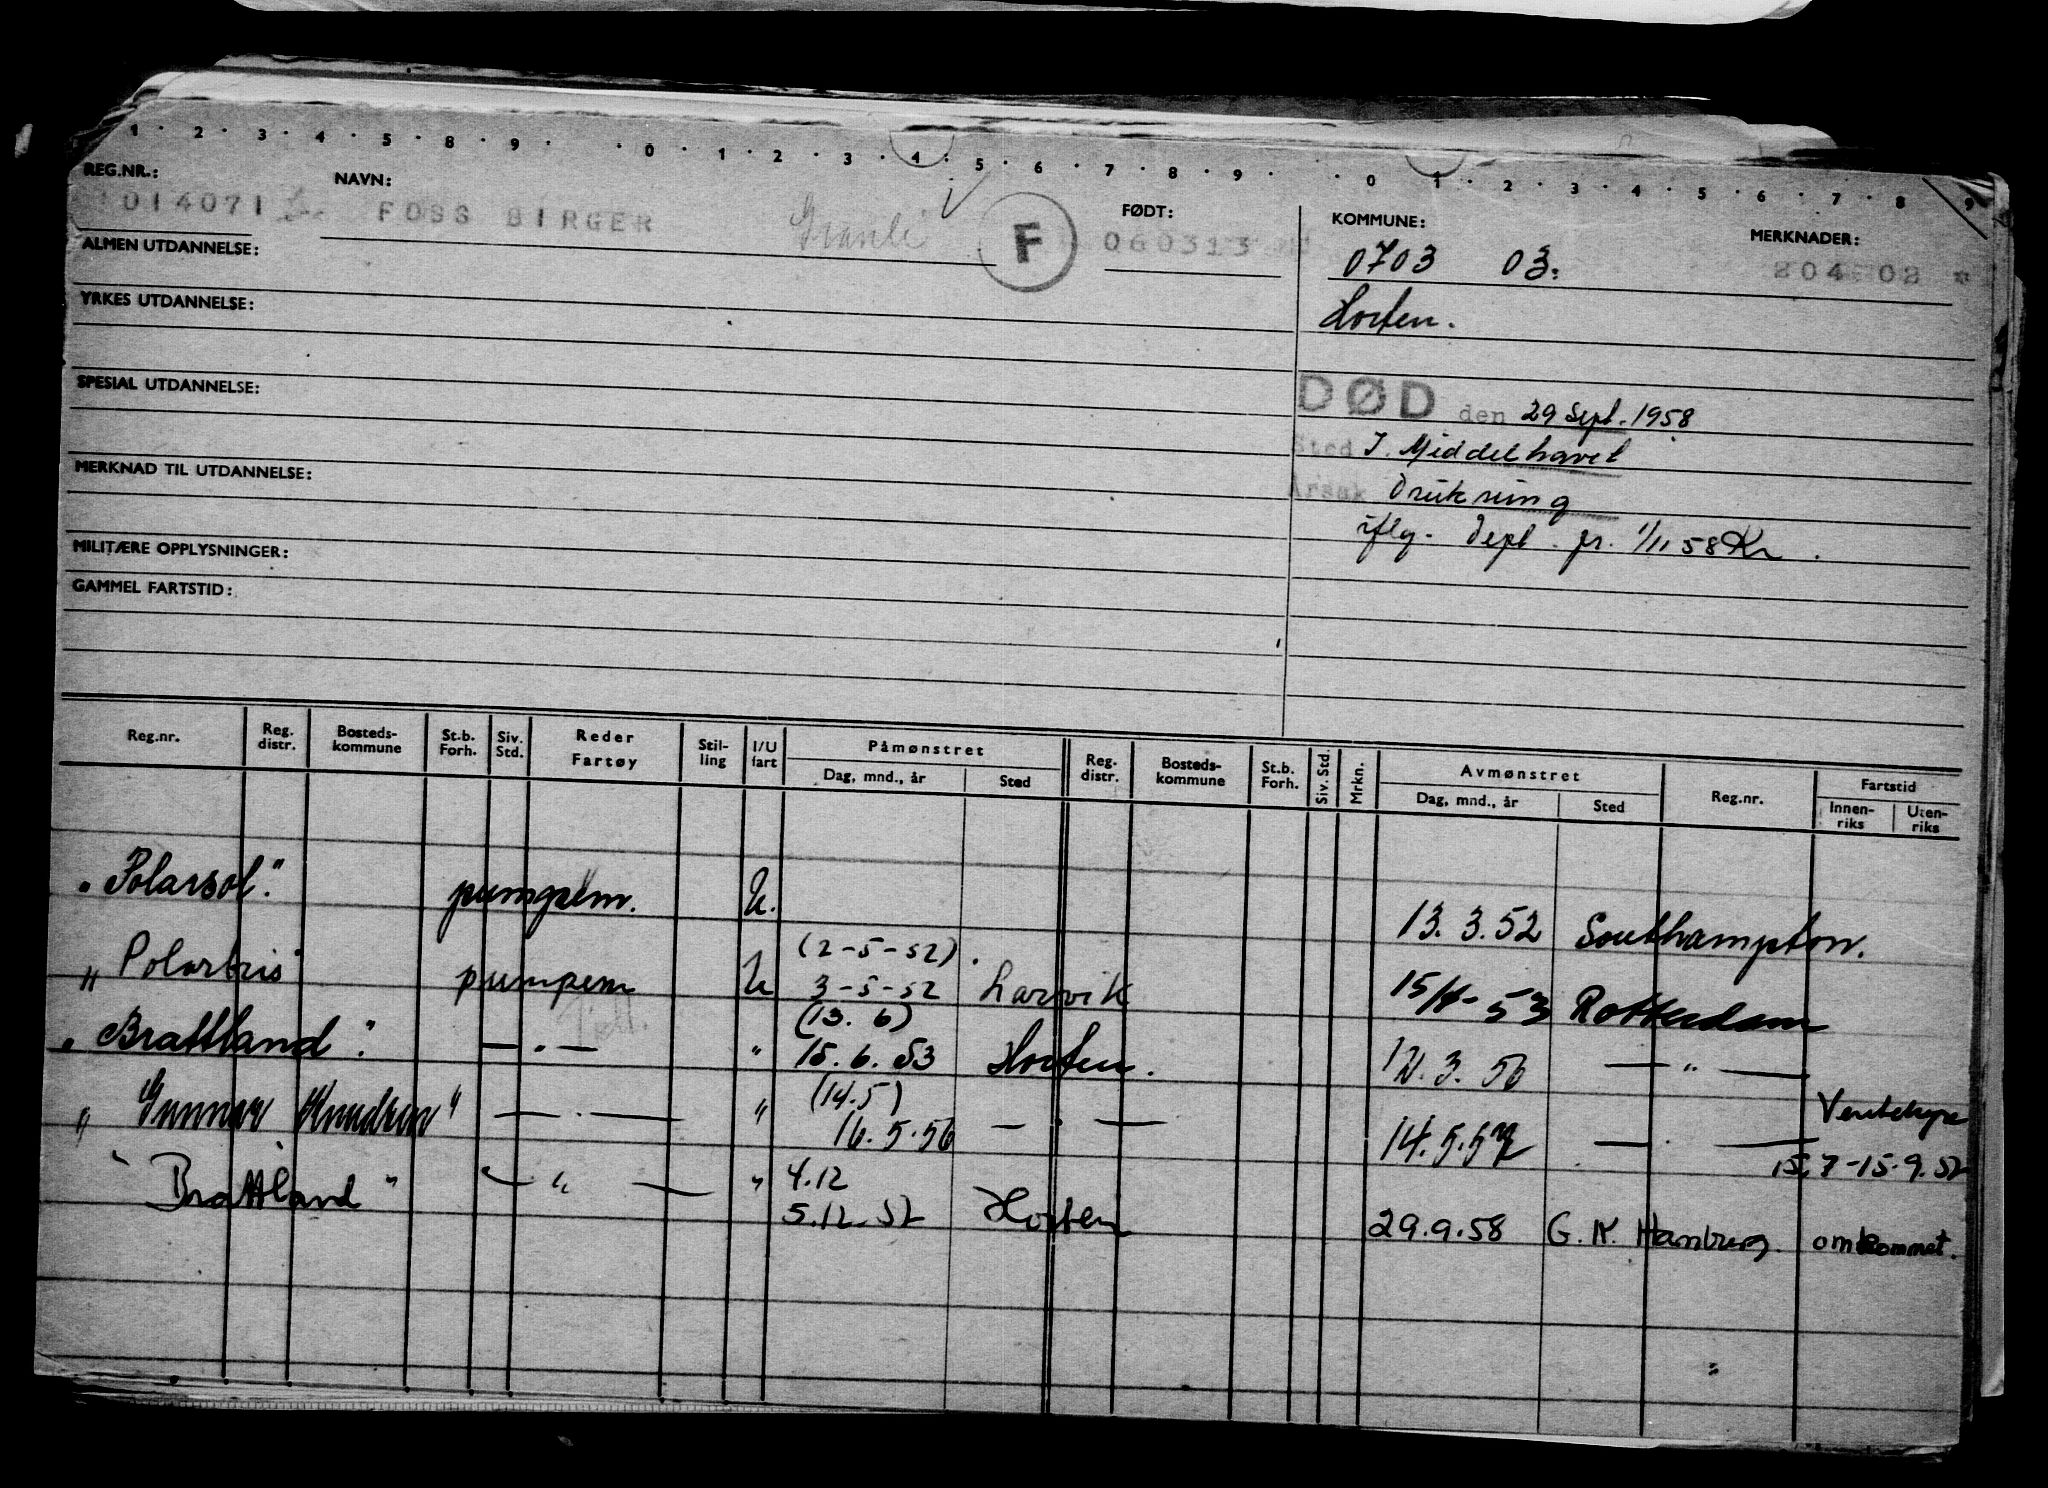 1 . 2 . 3 . 4 . 5 . 8 . 9 . . 0 . 1 . 2 . 3 . 4 . 5 . 6 . 7 . 8 . 9 . . 0 . 1 . 2 . 3 . 4 . 5 . 6 . 7 . 8 . 9
REG.NR.: NAVN: FØDT: KOMMUNE: MERKNADER:
014071 FOSS BIRGER Granli F 060313 0703 03: 804 02
ALMEN UTDANNELSE:
Horten.
YRKES UTDANNELSE:
SPESIAL UTDANNELSE:
DØD den 29 Sept. 1958
Sted I. Middelhavet
MERKNAD TIL UTDANNELSE:
Årsak Drukning
iflg. Dept. pr. 1/11 58 Kr.
MILITÆRE OPPLYSNINGER:
GAMMEL FARTSTID:
Reg.nr. Reg. distr. Bosteds-kommune St.b. Forh. Siv. Std. Reder Fartøy Stil-ling I/U fart Påmønstret Dag, mnd., år Sted Reg. distr. Bosteds-kommune St.b. Forh. Siv. Std. Mrkn. Avmønstret Dag, mnd., år Sted Reg.nr. Fartstid Innen-riks Uten-riks
"Polarsol." pumpem. U. 13. 3. 52 Southampton.
(2-5-52).
"Polarbris" pumpem U 3-5-52 Larvik 15/4-53 Rotterdam
(13. 6)
"Brattland". — " — " 15. 6. 53 Horten. 12. 3. 56 — " —
(14.5)
"Gunnar Knudsen" — " — " 16. 5. 56 — " — 14. 5. 57 — " —
15.7-15.9.57
"Brattland" — " — " 4.12
5.12.57 Horten 29.9.58 G. K. Hamburg. omkommet.